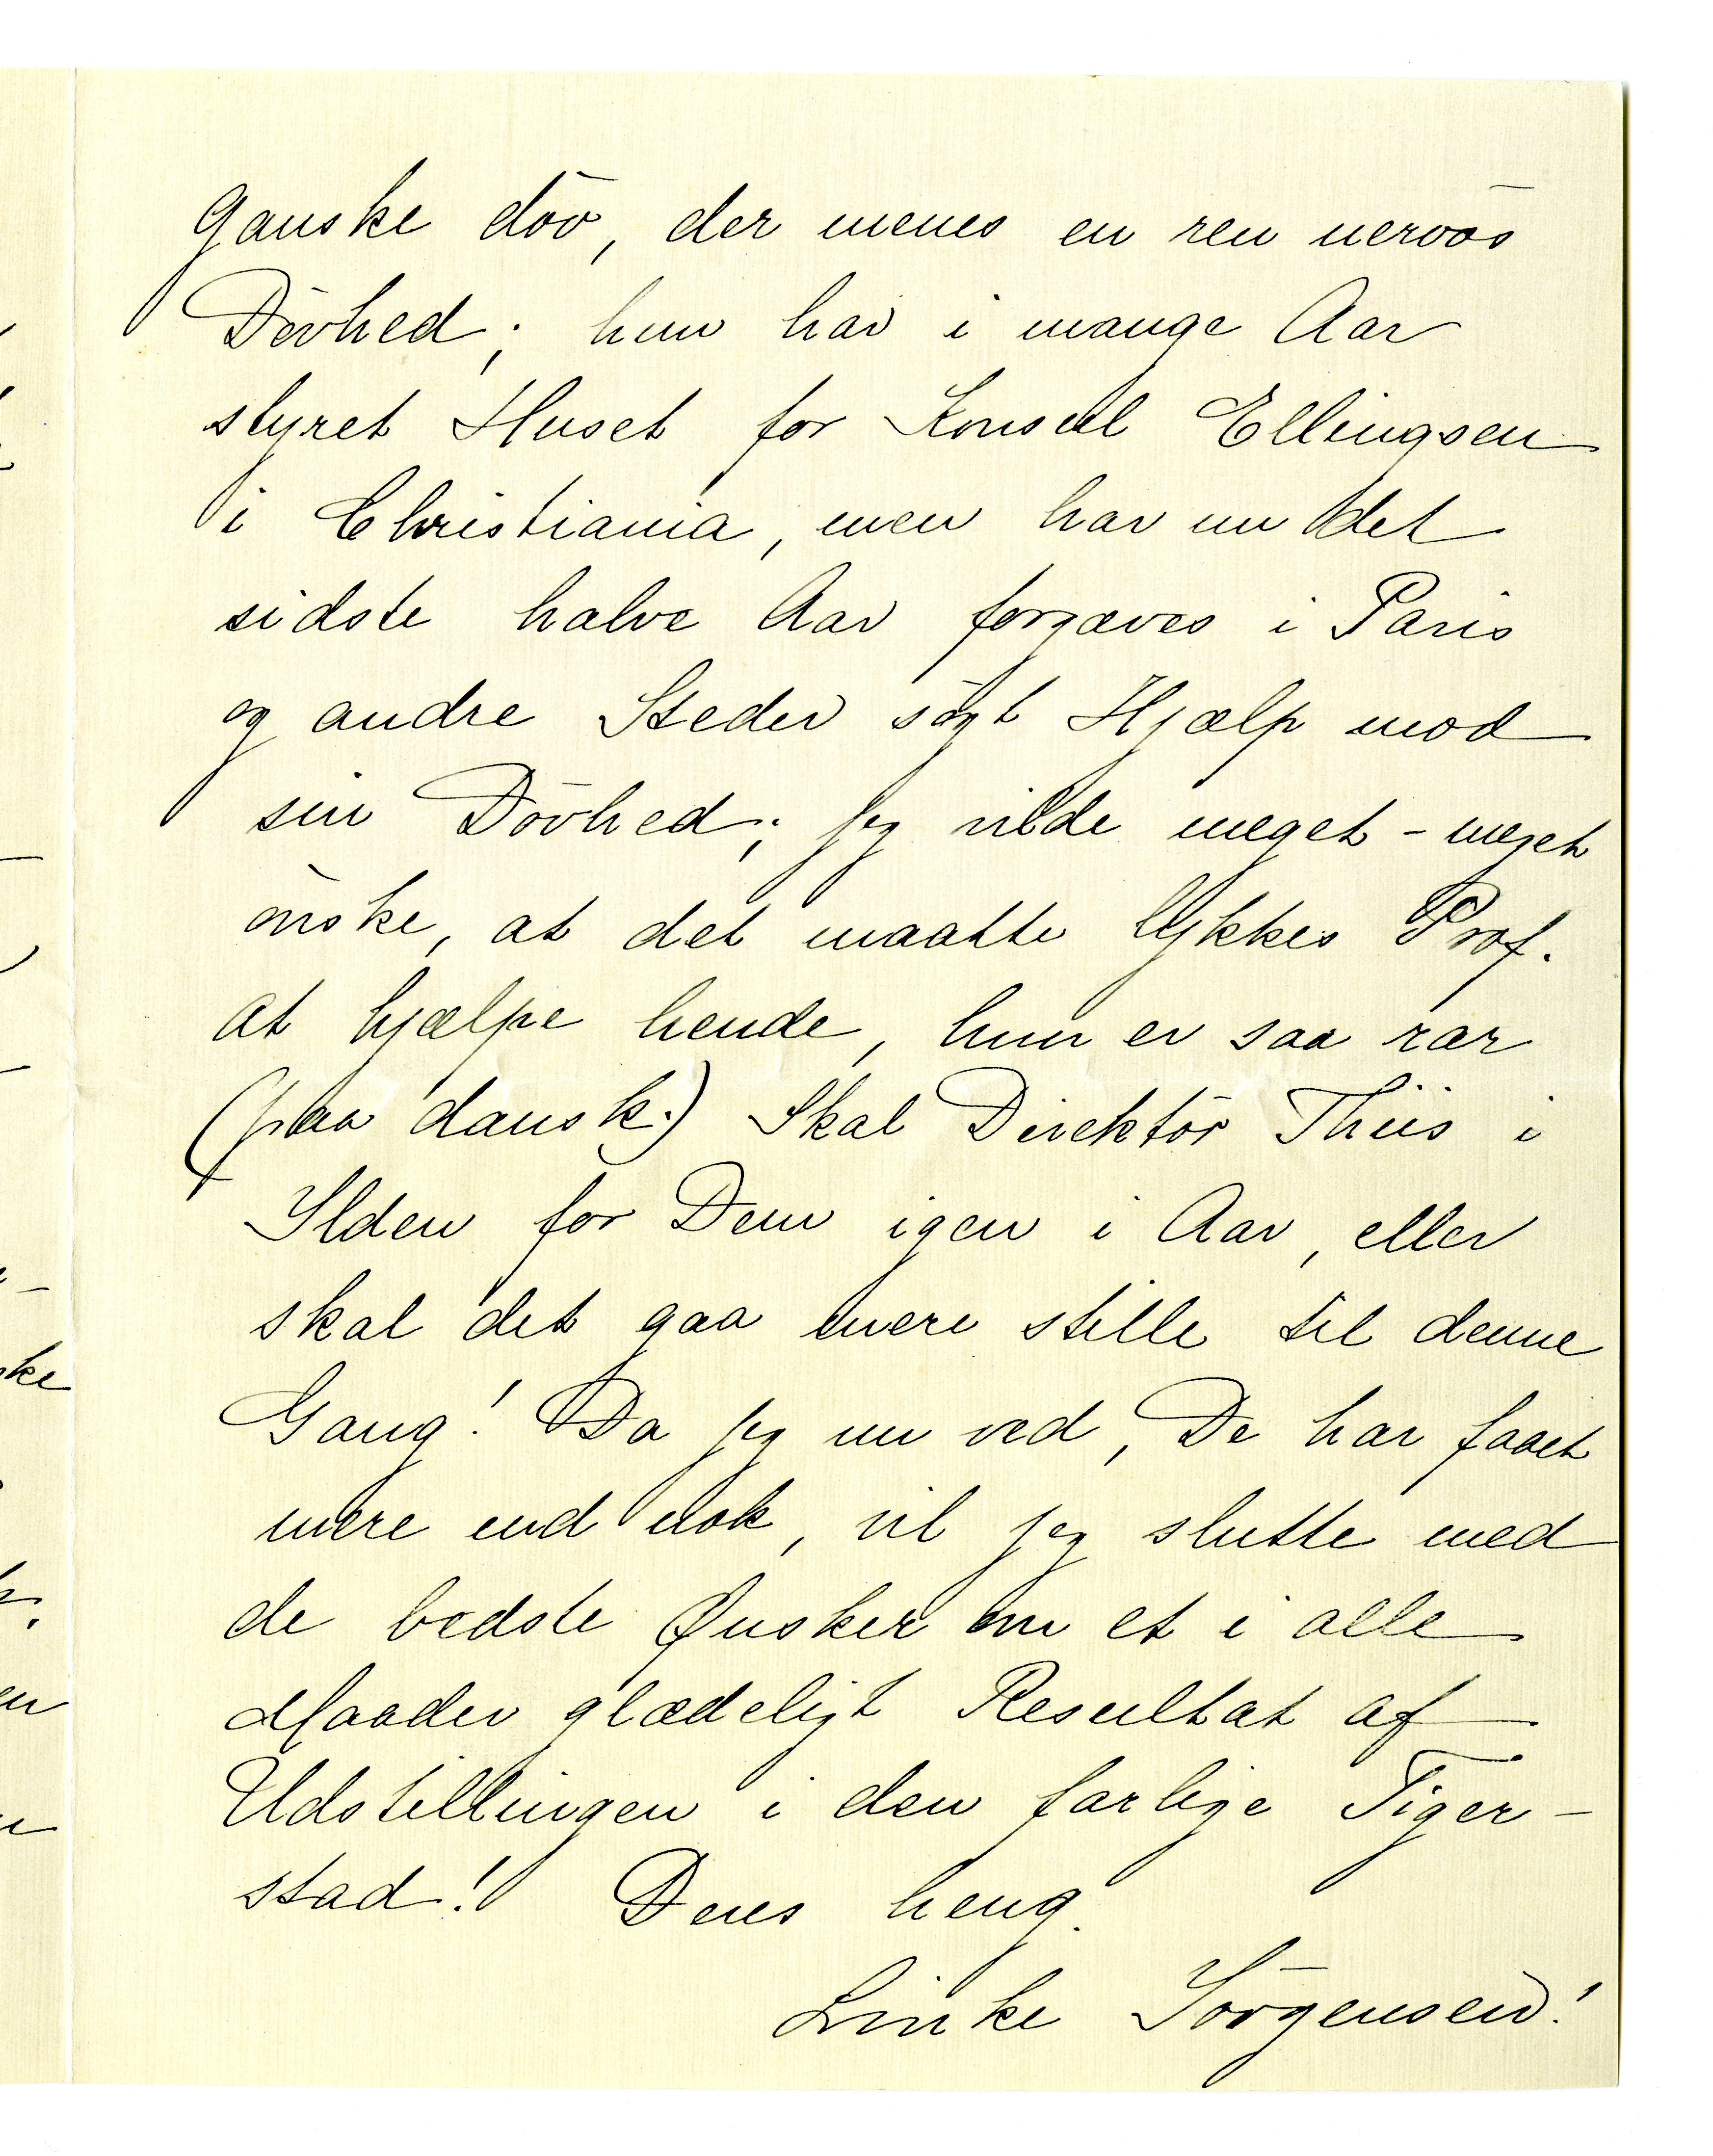 ganske döv, der menes en ren nervös
Dövhed; hun har i mange Aar
styret Huset for Konsul Ellingsen
i Christiania, men har nu det
sidste halve Aar forgæves i Paris
og andre Steder sögt Hjælp mod
sin Dövhed; jeg vilde meget - meget
önske, at det maatte lykkes Prof.
at hjælpe hende, hun er saa rar
(paa dansk.) Skal Direktör Thiis i
Ilden for Dem igen i Aar, eller
skal det gaa mere stille til denne
Gang! Da jeg nu ved, De har faaet
mere end nok, vil jeg slutte med
de bedste Ønsker om et i alle
Maader glædeligt Resultat af
Udstillingen i den farlige Tiger-
stad! Deres heng.
Linke Jörgensen!
ke